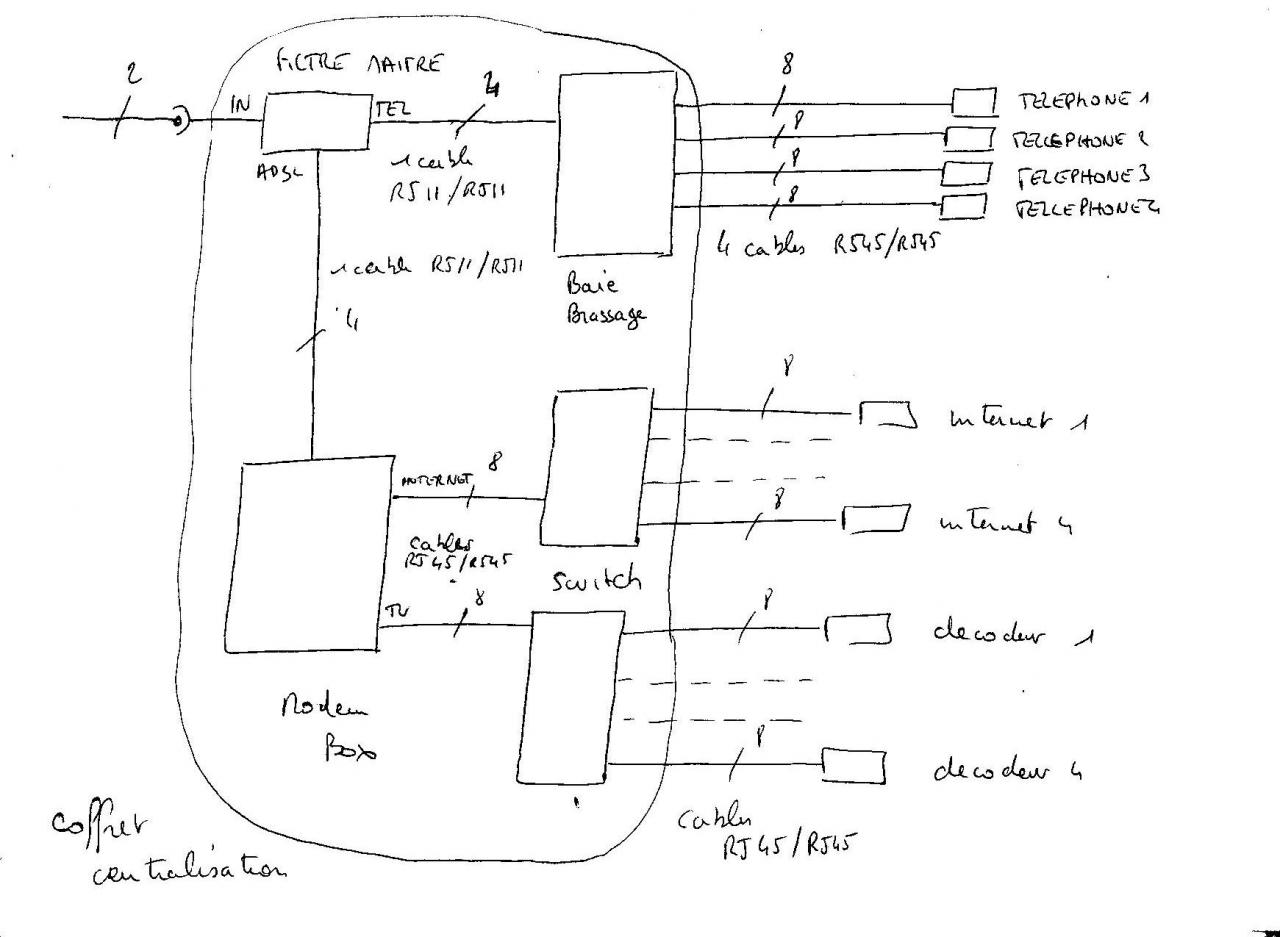 FILTRE MAITRE
2
IN
TEL
4
ADSL
1 cable
RJ11/RJ11
8
TELEPHONE 1
8
TELLEPHONE 2
8
TELEPHONE 3
8
TELLEPHONE 4
4 cables RJ45/RJ45
1 cable RJ11/RJ11
4
Baie
Brassage
8
internet 1
INTERNET
8
8
internet 4
cables
RJ45/RJ45
switch
TV
8
8
decodeur 1
Modem
Box
8
decodeur 4
cables
RJ45/RJ45
coffret
centralisation